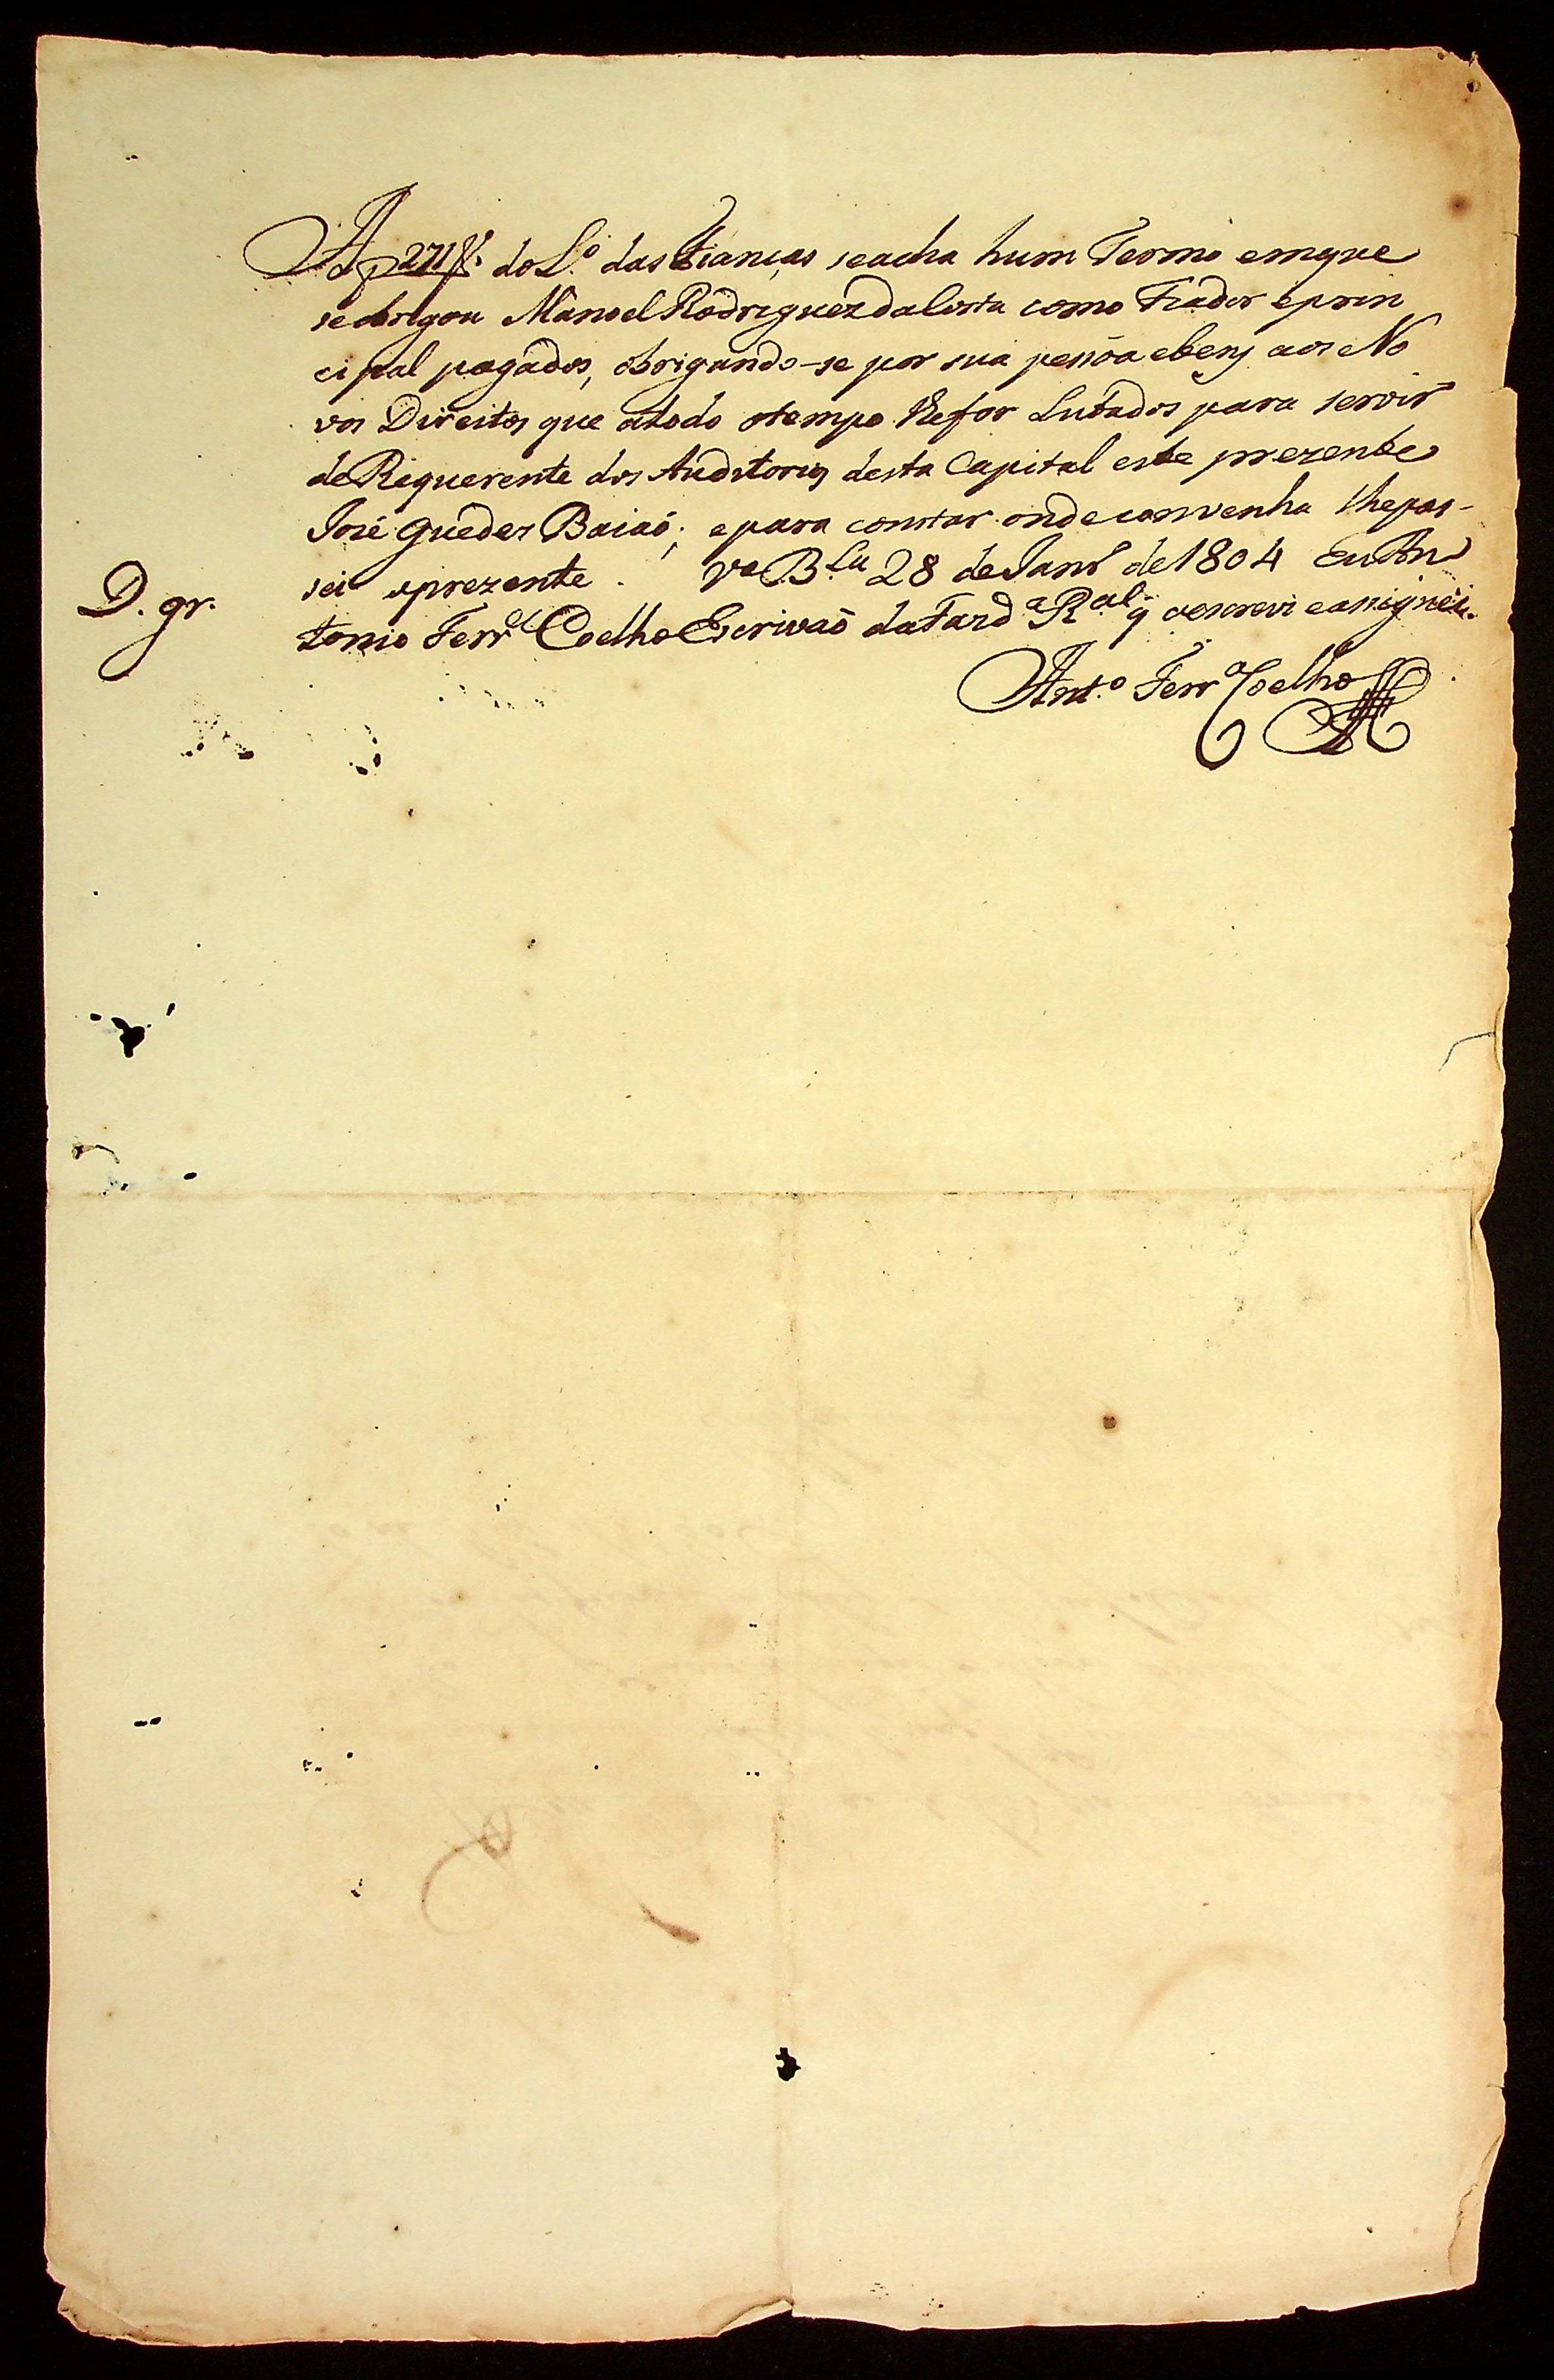 Af 271 V. do L.º das Fianças seacha hum Termo emque
seobrigou Manoel Rodriguez da Costa como Fiador eprin
cipal pagador, obrigando-se por sua pessôa ebens aos No
vos Direitos que atodo otempo lhefor Lutados para servir
de Requerente dos Auditorios desta Capital este prezente
José Guedes Baiaõ; epara constar ondeconvenha lhepas-
sei aprezente. Va B.la 28 de Janr.º de 1804 Eu An
D. gr.
tonio Ferr.ª Coelho Escrivaõ da Fazd.ª R.al q oescrevi easignei.
Ant.º Ferr.ª Coelho